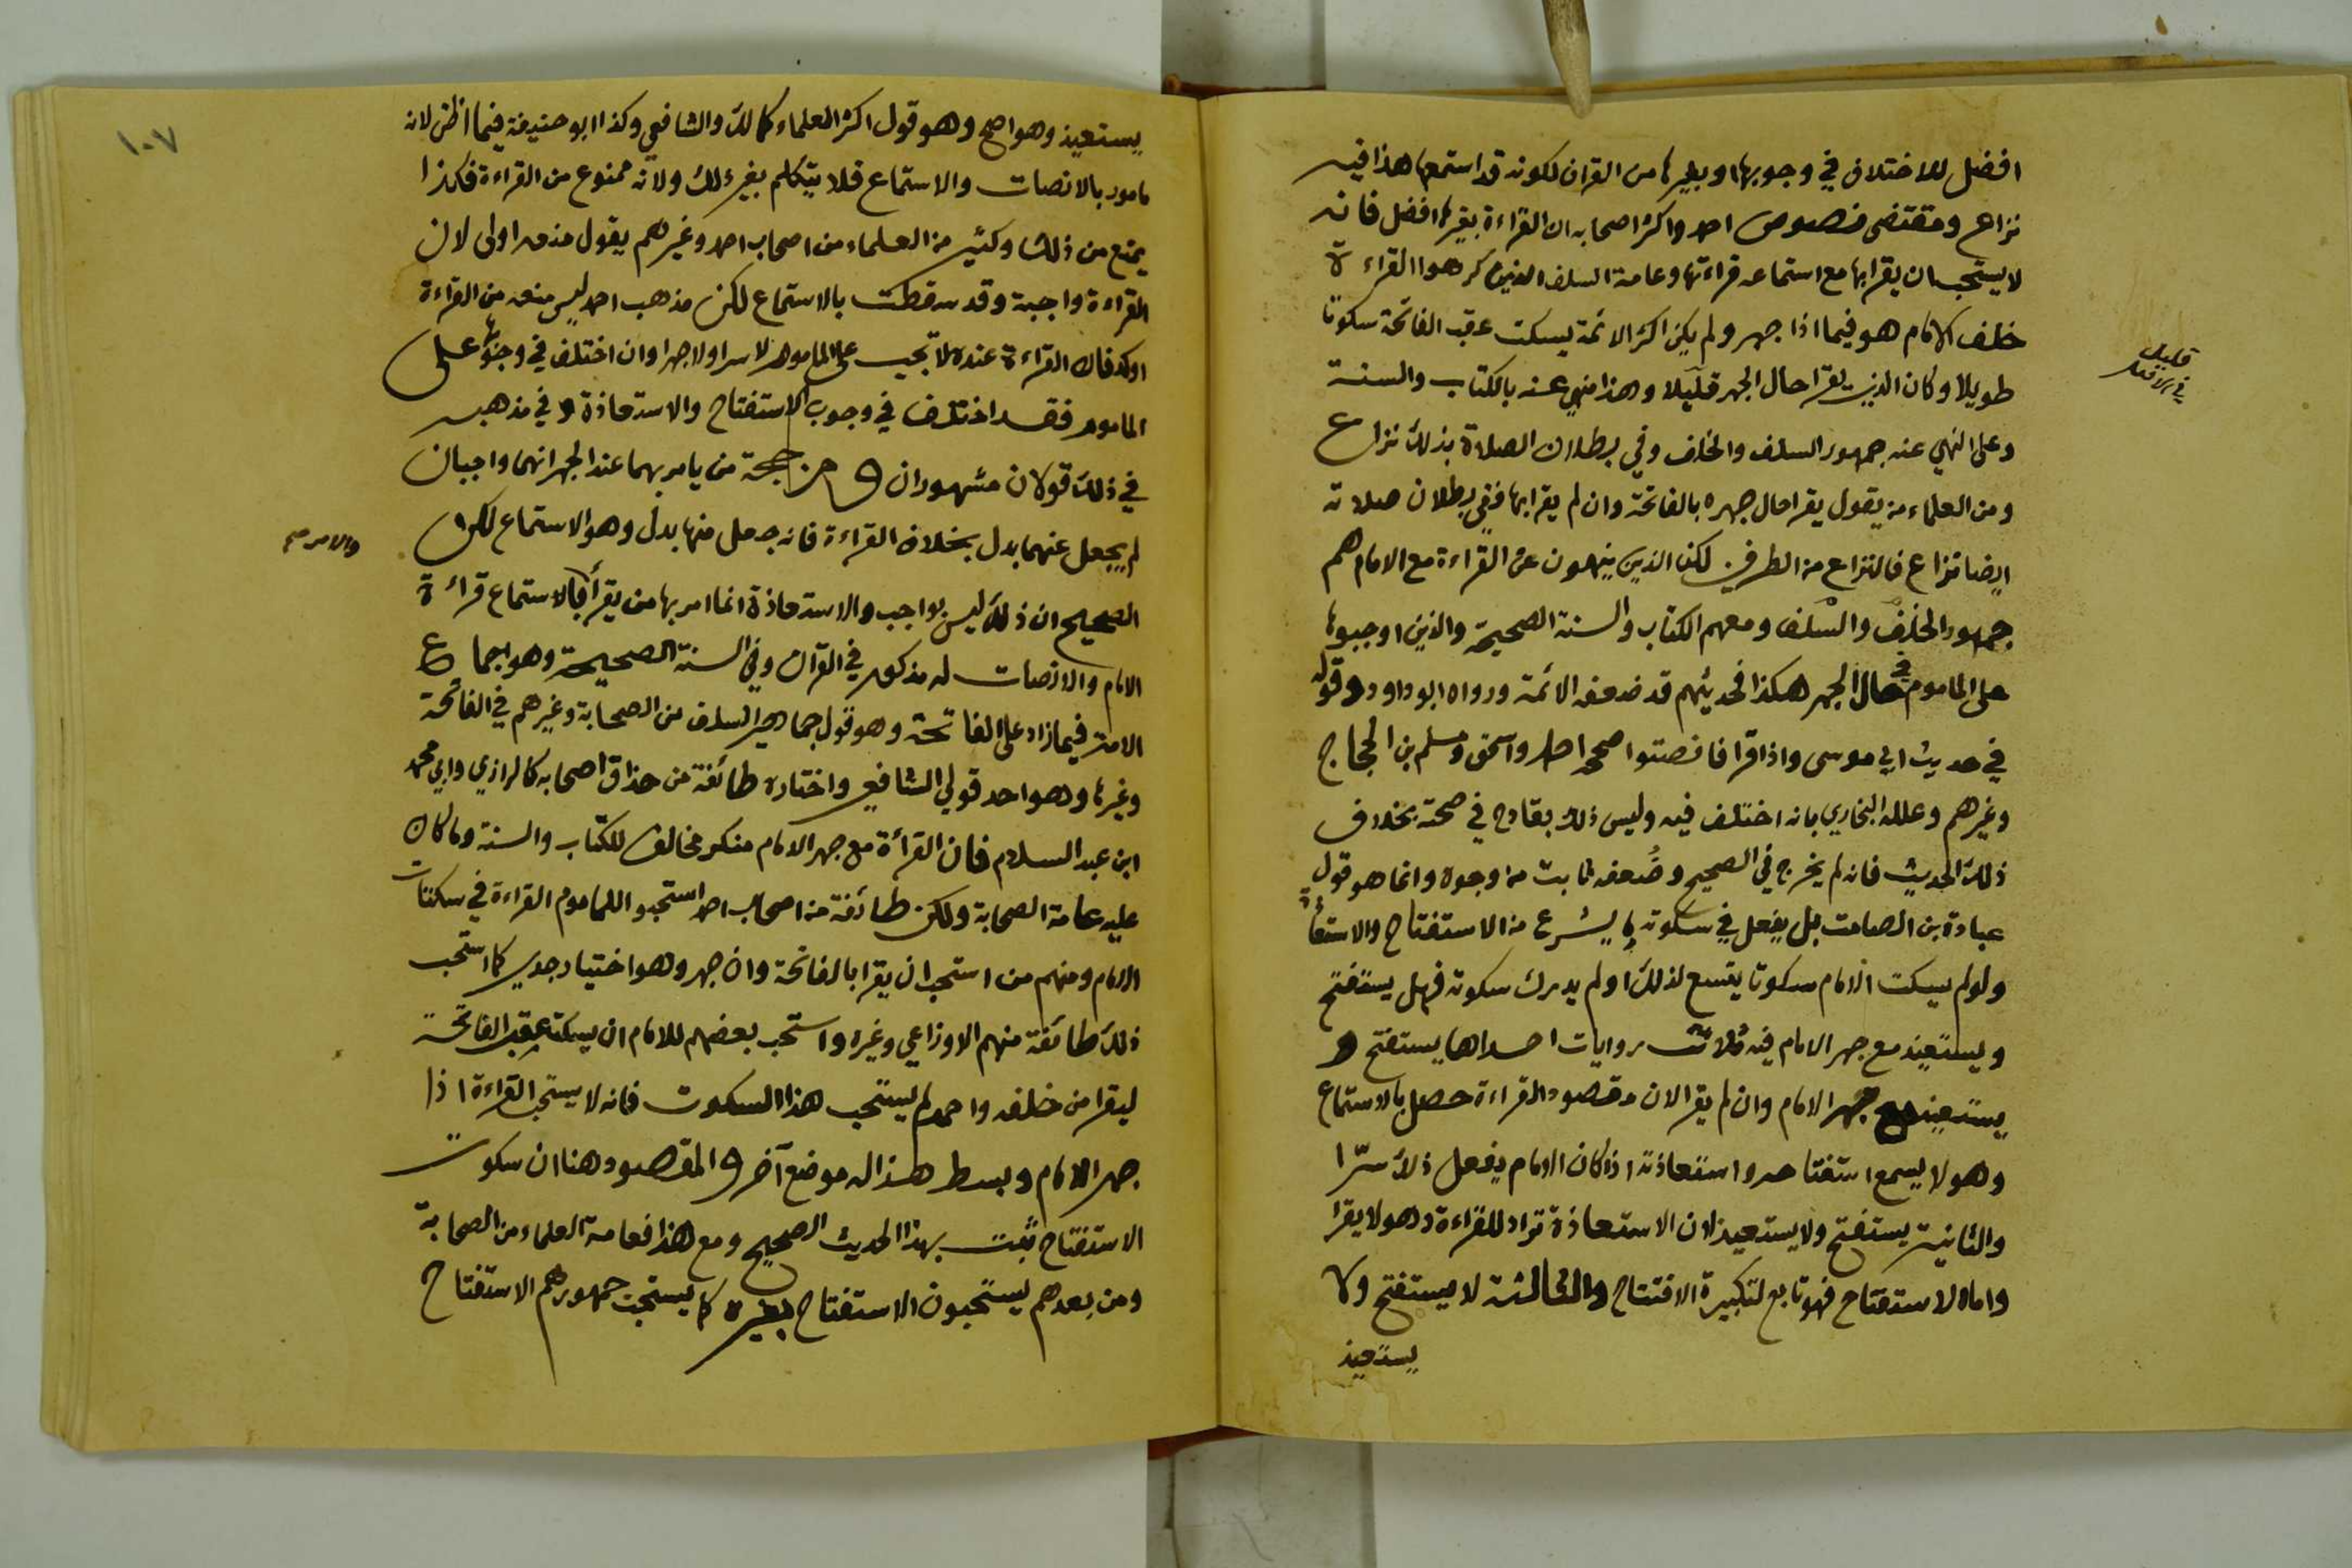 افضل للاختلاف في وجوبها او بغيرها من القران لكونه قد استمعها هذا فيه
نزاع ومقتضى نصوص احمد واكثر اصحابه ان القراءة بغيرها افضل فانه
لا يستحب ان يقرا بها مع استماعه قراءتها وعامة السلف الذين كرهوا القراءة
خلف الامام هو فيما اذا جهر ولم يكن اكثر الائمة يسكت عقب الفاتحة سكوتا
طويلا وكان الذي يقرا حال الجهر قليلا وهذا منهي عنه بالكتاب والسنة
قليل
في الاصل
وعلى النهي عنه جمهور السلف والخلف وفي بطلان الصلاة بذلك نزاع
ومن العلماء من يقول يقرا حال جهره بالفاتحة وان لم يقرا بها ففي بطلان صلاته
ايضا نزاع فالنزاع من الطرفين لكن الذين ينهون عن القراءة مع الامام هم
جمهور الخلف والسلف ومعهم الكتاب والسنة الصحيحة والذين اوجبوها
على الماموم في حال الجهر هكذا فحديثهم قد ضعفه الائمة ورواه ابو داود وقوله
في حديث ابي موسى واذا قرا فانصتوا صححه احمد واسحق ومسلم بن الحجاج
وغيرهم وعلله البخاري بانه اختلف فيه وليس ذلك بقادح في صحته بخلاف
ذلك الحديث فانه لم يخرج في الصحيح وضعفه ثابت من وجوه وانما هو قول
عبادة بن الصامت بل يفعل في سكوته ما يشرع من الاستفتاح والاستعاذة
ولو لم يسكت الامام سكوتا يتسع لذلك او لم يدرك سكوته فهل يستفتح
ويستعيذ مع جهر الامام فيه ثلاث روايات احداها يستفتح و
يستعيذ مع جهر الامام وان لم يقرا لان مقصود القراءة حصل بالاستماع
وهو لا يسمع استفتاحه واستعاذته اذ كان الامام يفعل ذلك سرا
والثانية يستفتح ولا يستعيذ لان الاستعاذة تراد للقراءة وهو لا يقرا
واما الاستفتاح فهو تابع لتكبيرة الافتتاح والثالثة لا يستفتح ولا
يستعيذ
١٠٧
يستعيذ وهو اصح وهو قول اكثر العلماء كمالك والشافعي وكذا ابو حنيفة فيما اظن لانه
مامور بالانصات والاستماع فلا يتكلم بغير ذلك ولانه ممنوع من القراءة فكذا
يمنع من ذلك وكثير من العلماء من اصحاب احمد وغيرهم يقول منعه اولى لان
القراءة واجبة وقد سقطت بالاستماع لكن مذهب احمد ليس منعه من القراءة
اوكد فان القراءة عنده لا تجب على الماموم لا سرا ولا جهرا وان اختلف في وجوبها على
الماموم فقد اختلف في وجوب الاستفتاح والاستعاذة وفي مذهبه
في ذلك قولان مشهوران ومن حجة من يامر بهما عند الجهر انهما واجبان
لم يجعل عنهما بدل بخلاف القراءة فانه جعل منها بدل وهو الاستماع لكن
الصحيح ان ذلك ليس بواجب والاستعاذة انما امر بها من يقرأ بالاستماع قراءة
والامر صح
الامام والانصات له مذكور في القرآن وفي السنة الصحيحة وهو اجماع
الامة فيما زاد على الفاتحة وهو قول جماهير السلف من الصحابة وغيرهم في الفاتحة
وغيرها وهو احد قولي الشافعي واختاره طائفة من حذاق اصحابه كالرازي وابي محمد
ابن عبد السلام فان القرأة مع جهر الامام منكر مخالف للكتاب والسنة وما كان
عليه عامة الصحابة ولكن طائفة من اصحاب احمد استحبوا للماموم القراءة في سكتات
الامام ومنهم من استحب ان يقرا بالفاتحة وان جهر وهو اختيار جدي كما استحب
ذلك طائفة منهم الاوزاعي وغيره واستحب بعضهم للامام ان يسكت عقب الفاتحة
ليقرا من خلفه واحمد لم يستحب هذا السكوت فانه لا يستحب القراءة اذا
جهر الامام وبسط هذا له موضع آخر والمقصود هنا ان سكوت
الاستفتاح ثبت بهذا الحديث الصحيح ومع هذا فعامة العلماء من الصحابة
ومن بعدهم يستحبون الاستفتاح بغيره كما يستحب جمهورهم الاستفتاح